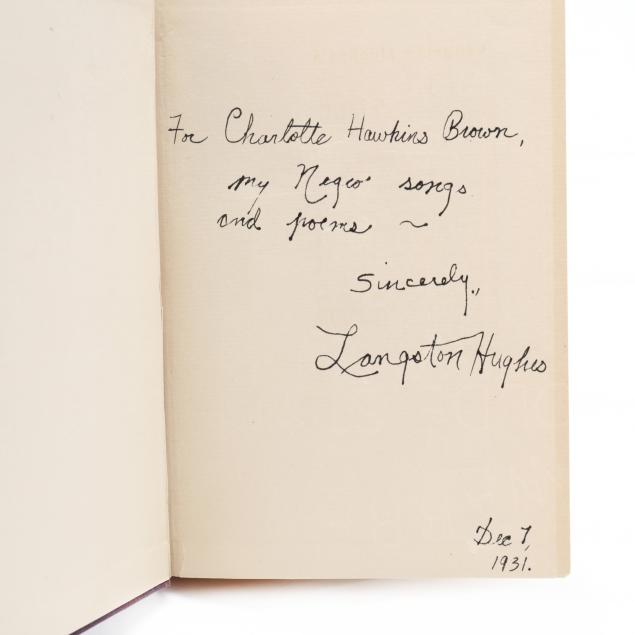 For Charlotte Hawkins Brown,
my Negro songs
and poems ~
Sincerely,
Langston Hughes
Dec 7,
1931.